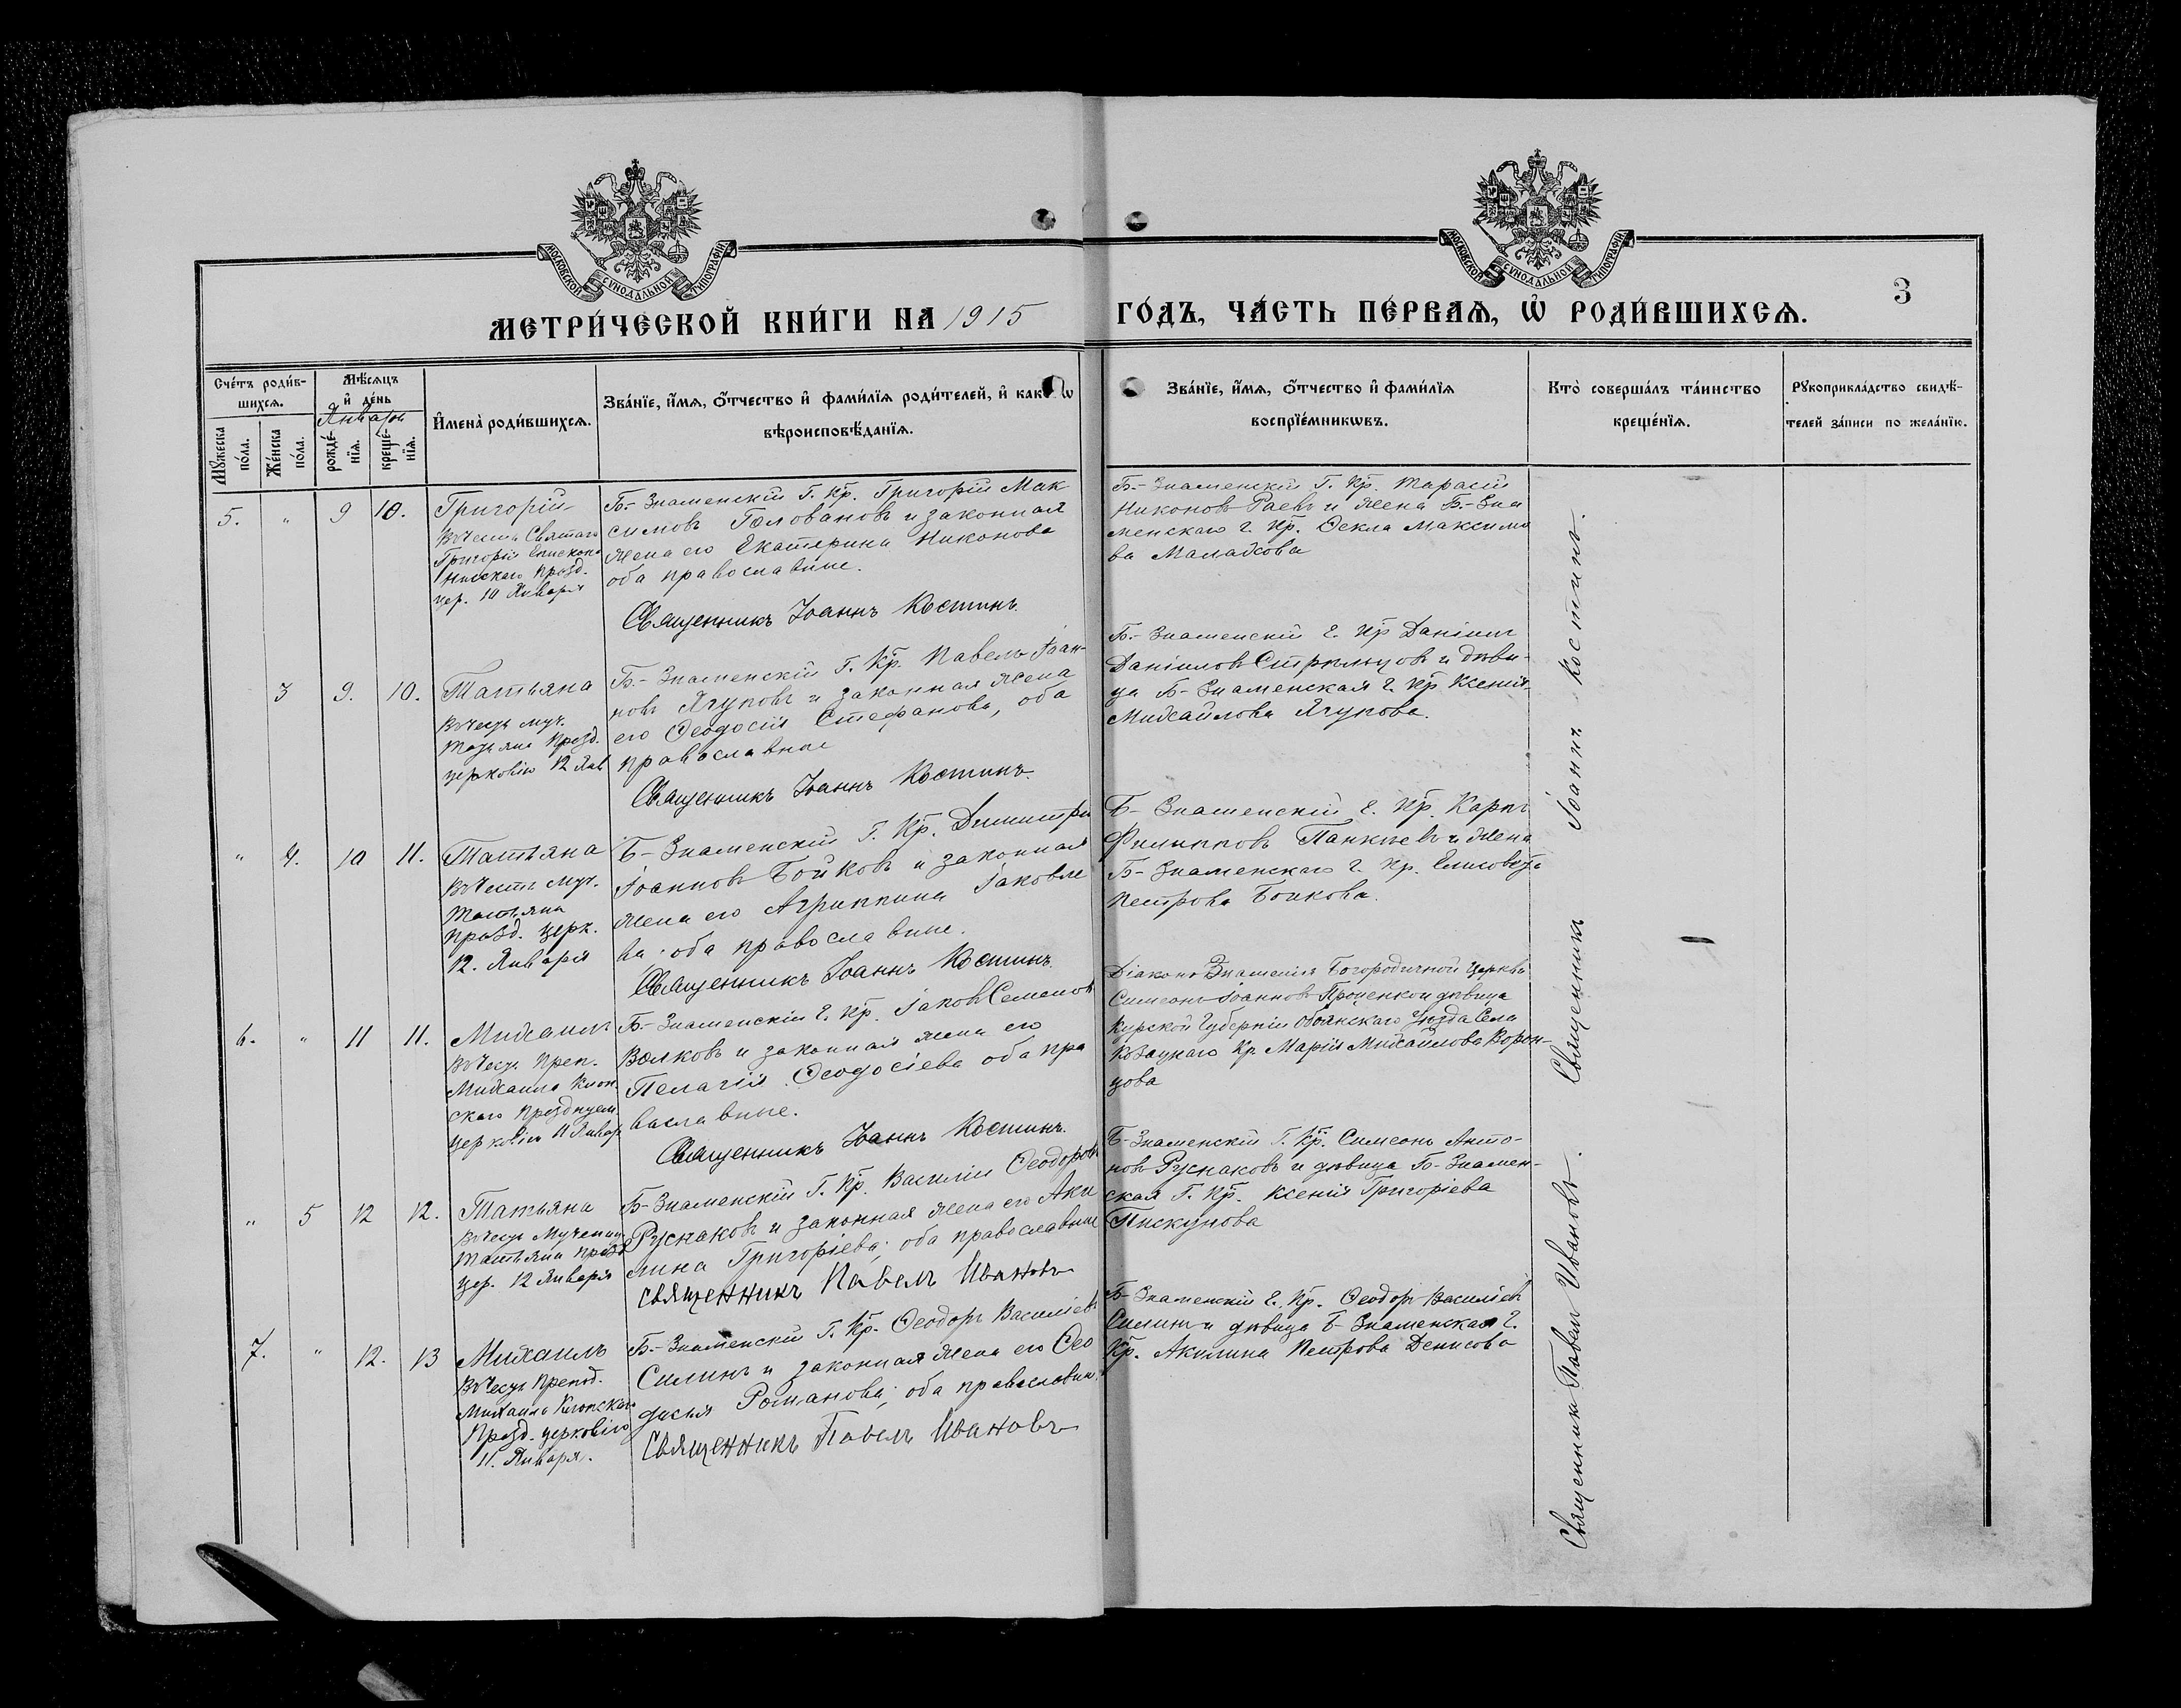 МОСКОВСКОЙ СѴНОДАЛЬНОЙ ТИПОГРАФІИ
МОСКОВСКОЙ СѴНОДАЛЬНОЙ ТИПОГРАФІИ
3
МЕТРИ́ЧЕСКОЙ КНИ́ГИ НА 1915 ГО́ДЪ, ЧА́СТЬ ПЕ́РВАѦ, Ѡ҆ РОДИ́ВШИХСѦ.
Сче́тъ роди́в-
шихсѧ.
Мѣ́сѧцъ
и҆ де́нь
Января
Мꙋ́жеска
по́ла.
Же́нска
по́ла.
рожде́-
нїѧ.
креще́-
нїѧ.
И҆мена̀ роди́вшихсѧ.
Зва́нїе, и҆́мѧ, ѻ҆́тчество и҆ фами́лїѧ роди́телей, и҆ как
вѣроисповѣ́данїѧ.
Зва́нїе, и҆́мѧ, ѻ҆́тчество и҆ фами́лїѧ
воспрїе́мникѡвъ.
Кто̀ соверша́лъ та́инство
креще́нїѧ.
Рꙋкоприкла́дство свидѣ́-
телей за́писи по жела́нїю.
5. " 9 10.
Григорій
Въ честь Святаго
Григорія Епископа
Нисскаго празд.
цер. 10 Января
Б.-Знаменскій Г. Кр. Григорій Мак
симовъ Головановъ и законная
жена его Екатерина Никонова
оба православные.
Священникъ Іоаннъ Костинъ.
Б.-Знаменскій Г. Кр. Тарасій
Никоновъ Раевъ и жена Б.-Зна
менскаго г. Кр. Ѳекла Максимо
ва Малахова
3 9. 10.
Татьяна
Въ честь муч.
Татьяны празд.
церковію 12 Янв
Б.-Знаменскій Г. Кр. Павелъ Іоан-
новъ Ягуповъ и законная жена
его Ѳеодосія Стефанова, оба
православные
Священникъ Іоаннъ Костинъ.
Б.-Знаменскій г. Кр Даніилъ
Даніиловъ Стрѣльцовъ и дѣви-
ца Б-Знаменская г. Кр Ксенія
Михайлова Ягупова.
" 4. 10 11.
Татьяна
Въ честь муч.
Татьяны
празд. церк.
12. Января
Б-Знаменскій Г. Кр. Димитрій
Іоанновъ Бойковъ и законная
жена его Агриппина Іаковле
ва; оба православные.
Священникъ Іоаннъ Костинъ.
Б-Знаменскій г. Кр. Карпъ
Филипповъ и жена
Б-Знаменскаго г. Кр. Елисовета
Петрова Бойкова.
6. " 11 11.
Михаилъ
Въ честь Преп.
Михаила Клоп
скаго празднуем.
церковію 11 Январ
Б-Знаменскій г. Кр. Іаковъ Семеновъ
Волковъ и законная жена его
Пелагія Ѳеодосіева оба пра
вославные.
Священникъ Іоаннъ Костинъ.
Діаконъ Знаменія Богородичной Церкви
Симеонъ Іоанновъ Проценко и дѣвица
Курской Губерніи Обоянскаго Уѣзда Села
Кр Марія Михайлова Ворон-
цова
" 5 12 12.
Татьяна
Въ честь Мучениц
Татьяны празд
цер. 12 Января
Б-Знаменскій Г. Кр. Василій Ѳеодоровъ
Руснаковъ и законная жена его Аки
лина Григоріева; оба православные
Священникъ Павелъ Ивановъ
Б-Знаменскій Г. Кр. Симеонъ Анто-
новъ Руснаковъ и дѣвица Б-Знамен-
ская Г. Кр. Ксенія Григоріева
Пискунова
7. " 12. 13
Михаилъ
Въ честь Препод.
Михаила Клопскаго
Празд. церковію
11. Января.
Б-Знаменскій Г. Кр. Ѳеодоръ Василіевъ
Силинъ и законная жена его Ѳео
досія Романова; оба православны.
Священникъ Павелъ Ивановъ
Б-Знаменскій г. Кр. Ѳеодоръ Василіевъ
Силинъ и дѣвица Б-Знаменская г.
Кр. Акилина Петрова Денисова
Священникъ Павелъ Ивановъ. Священникъ Іоаннъ Костинъ.